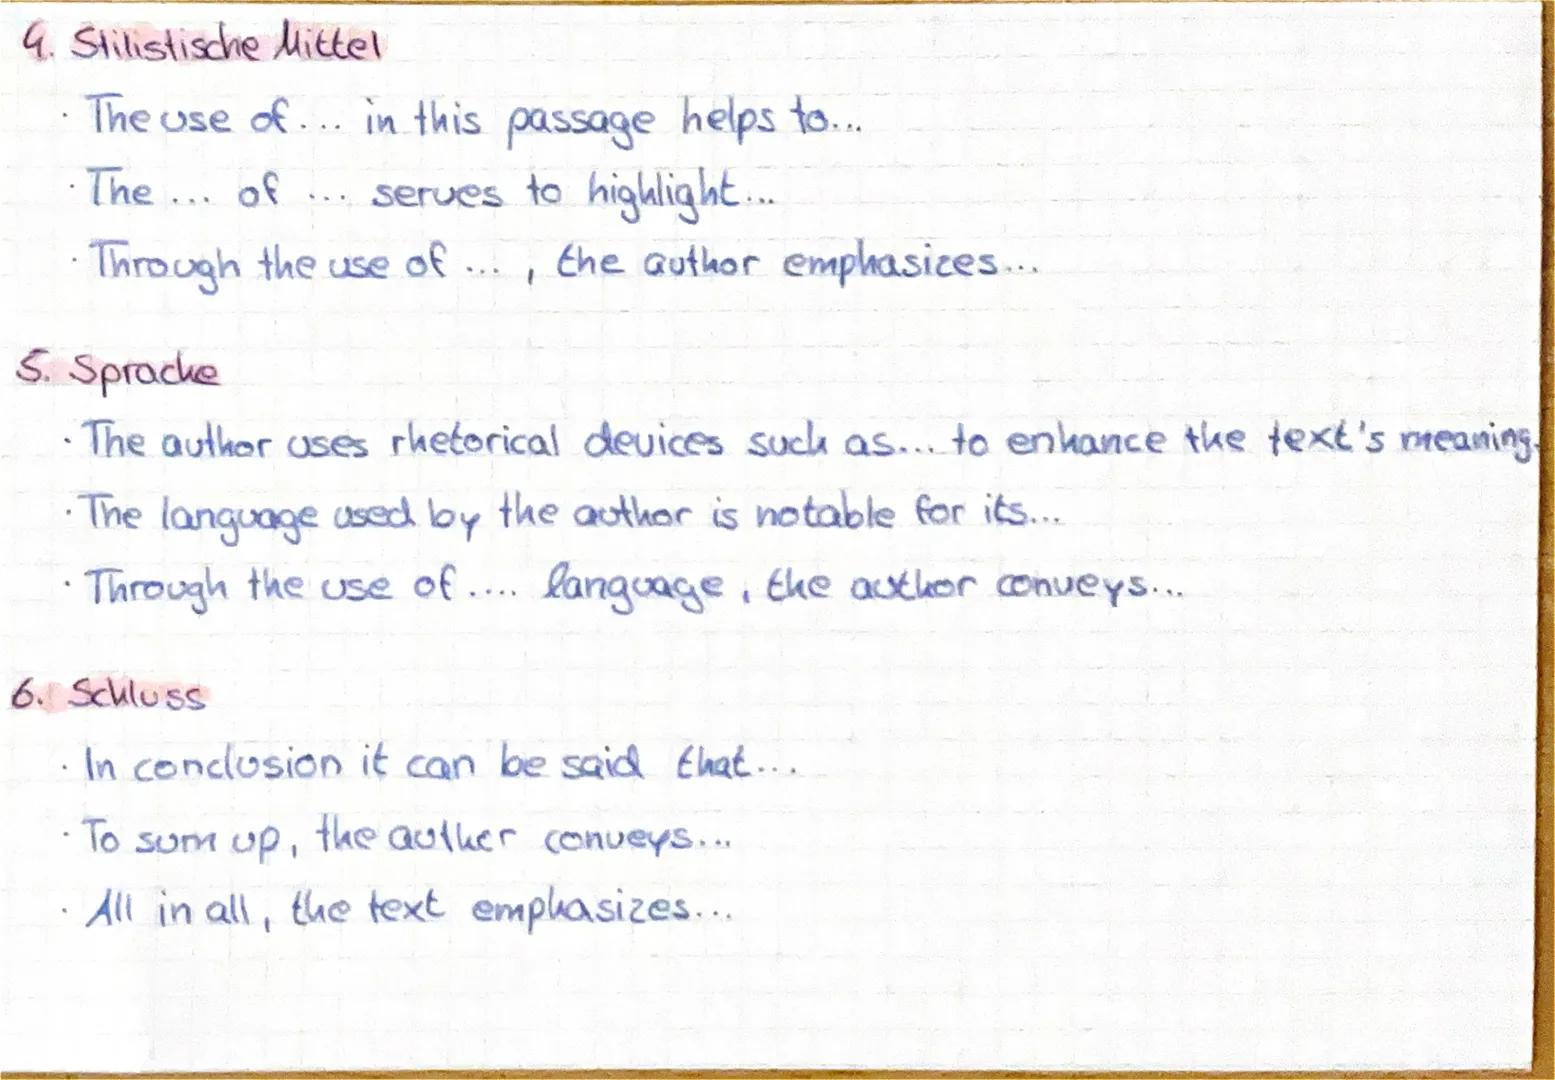 4. Stilistische Mittel
· The use of ... in this passage helps to...
· The ... of ... serves to highlight...
· Through the use of ... , the author emphasizes...
5. Sprache
· The author uses rhetorical devices such as... to enhance the text's meaning.
· The language used by the author is notable for its...
· Through the use of .... language, the author conveys...
6. Schluss
· In conclusion it can be said that...
· To sum up, the author conveys...
· All in all, the text emphasizes...